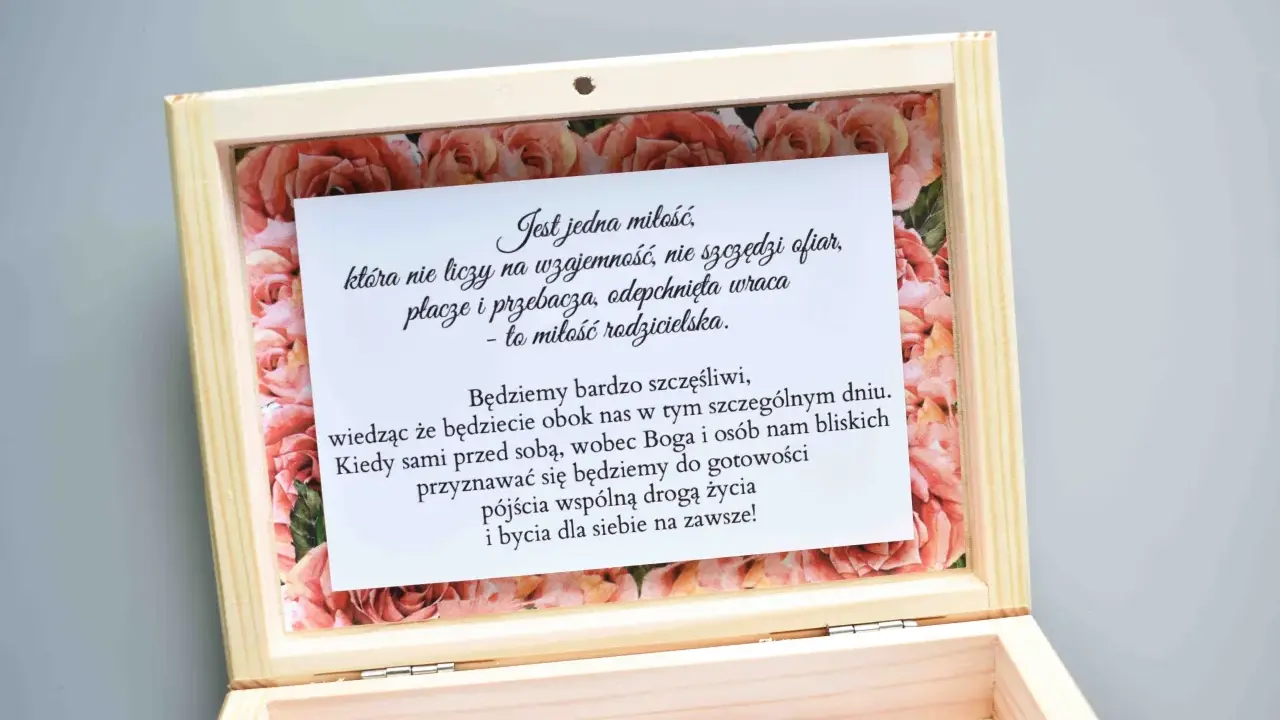 Jest jedna miłość,
która nie liczy na wzajemność, nie szczędzi ofiar,
płacze i przebacza, odepchnięta wraca
- to miłość rodzicielska.
Będziemy bardzo szczęśliwi,
wiedząc że będziecie obok nas w tym szczególnym dniu.
Kiedy sami przed sobą, wobec Boga i osób nam bliskich
przyznawać się będziemy do gotowości
pójścia wspólną drogą życia
i bycia dla siebie na zawsze!